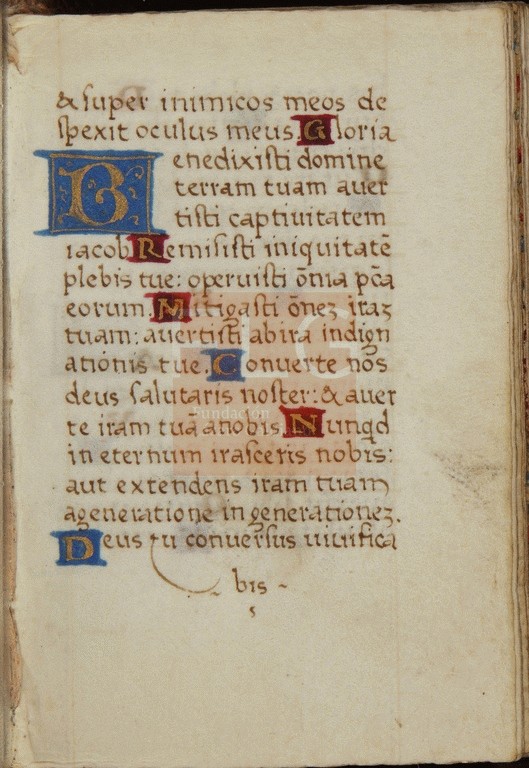 & super inimicos meos de
spexit oculus meus. Gloria
Benedixisti domine
terram tuam aver
tisti captivitatem
iacob Remisisti iniquitatē
plebis tue: operuisti ōnia pc̄a
eorum. Mitigasti ōnez iraz
tuam: avertisti ab ira indign
ationis tue. Converte nos
deus salutaris noster: & aver
te iram tua a nobis Nunqd
in eternum irasceris nobis:
aut extendens iram tuam
a generatione in generationez.
Deus tu conversus vivifica
bis
Fundación